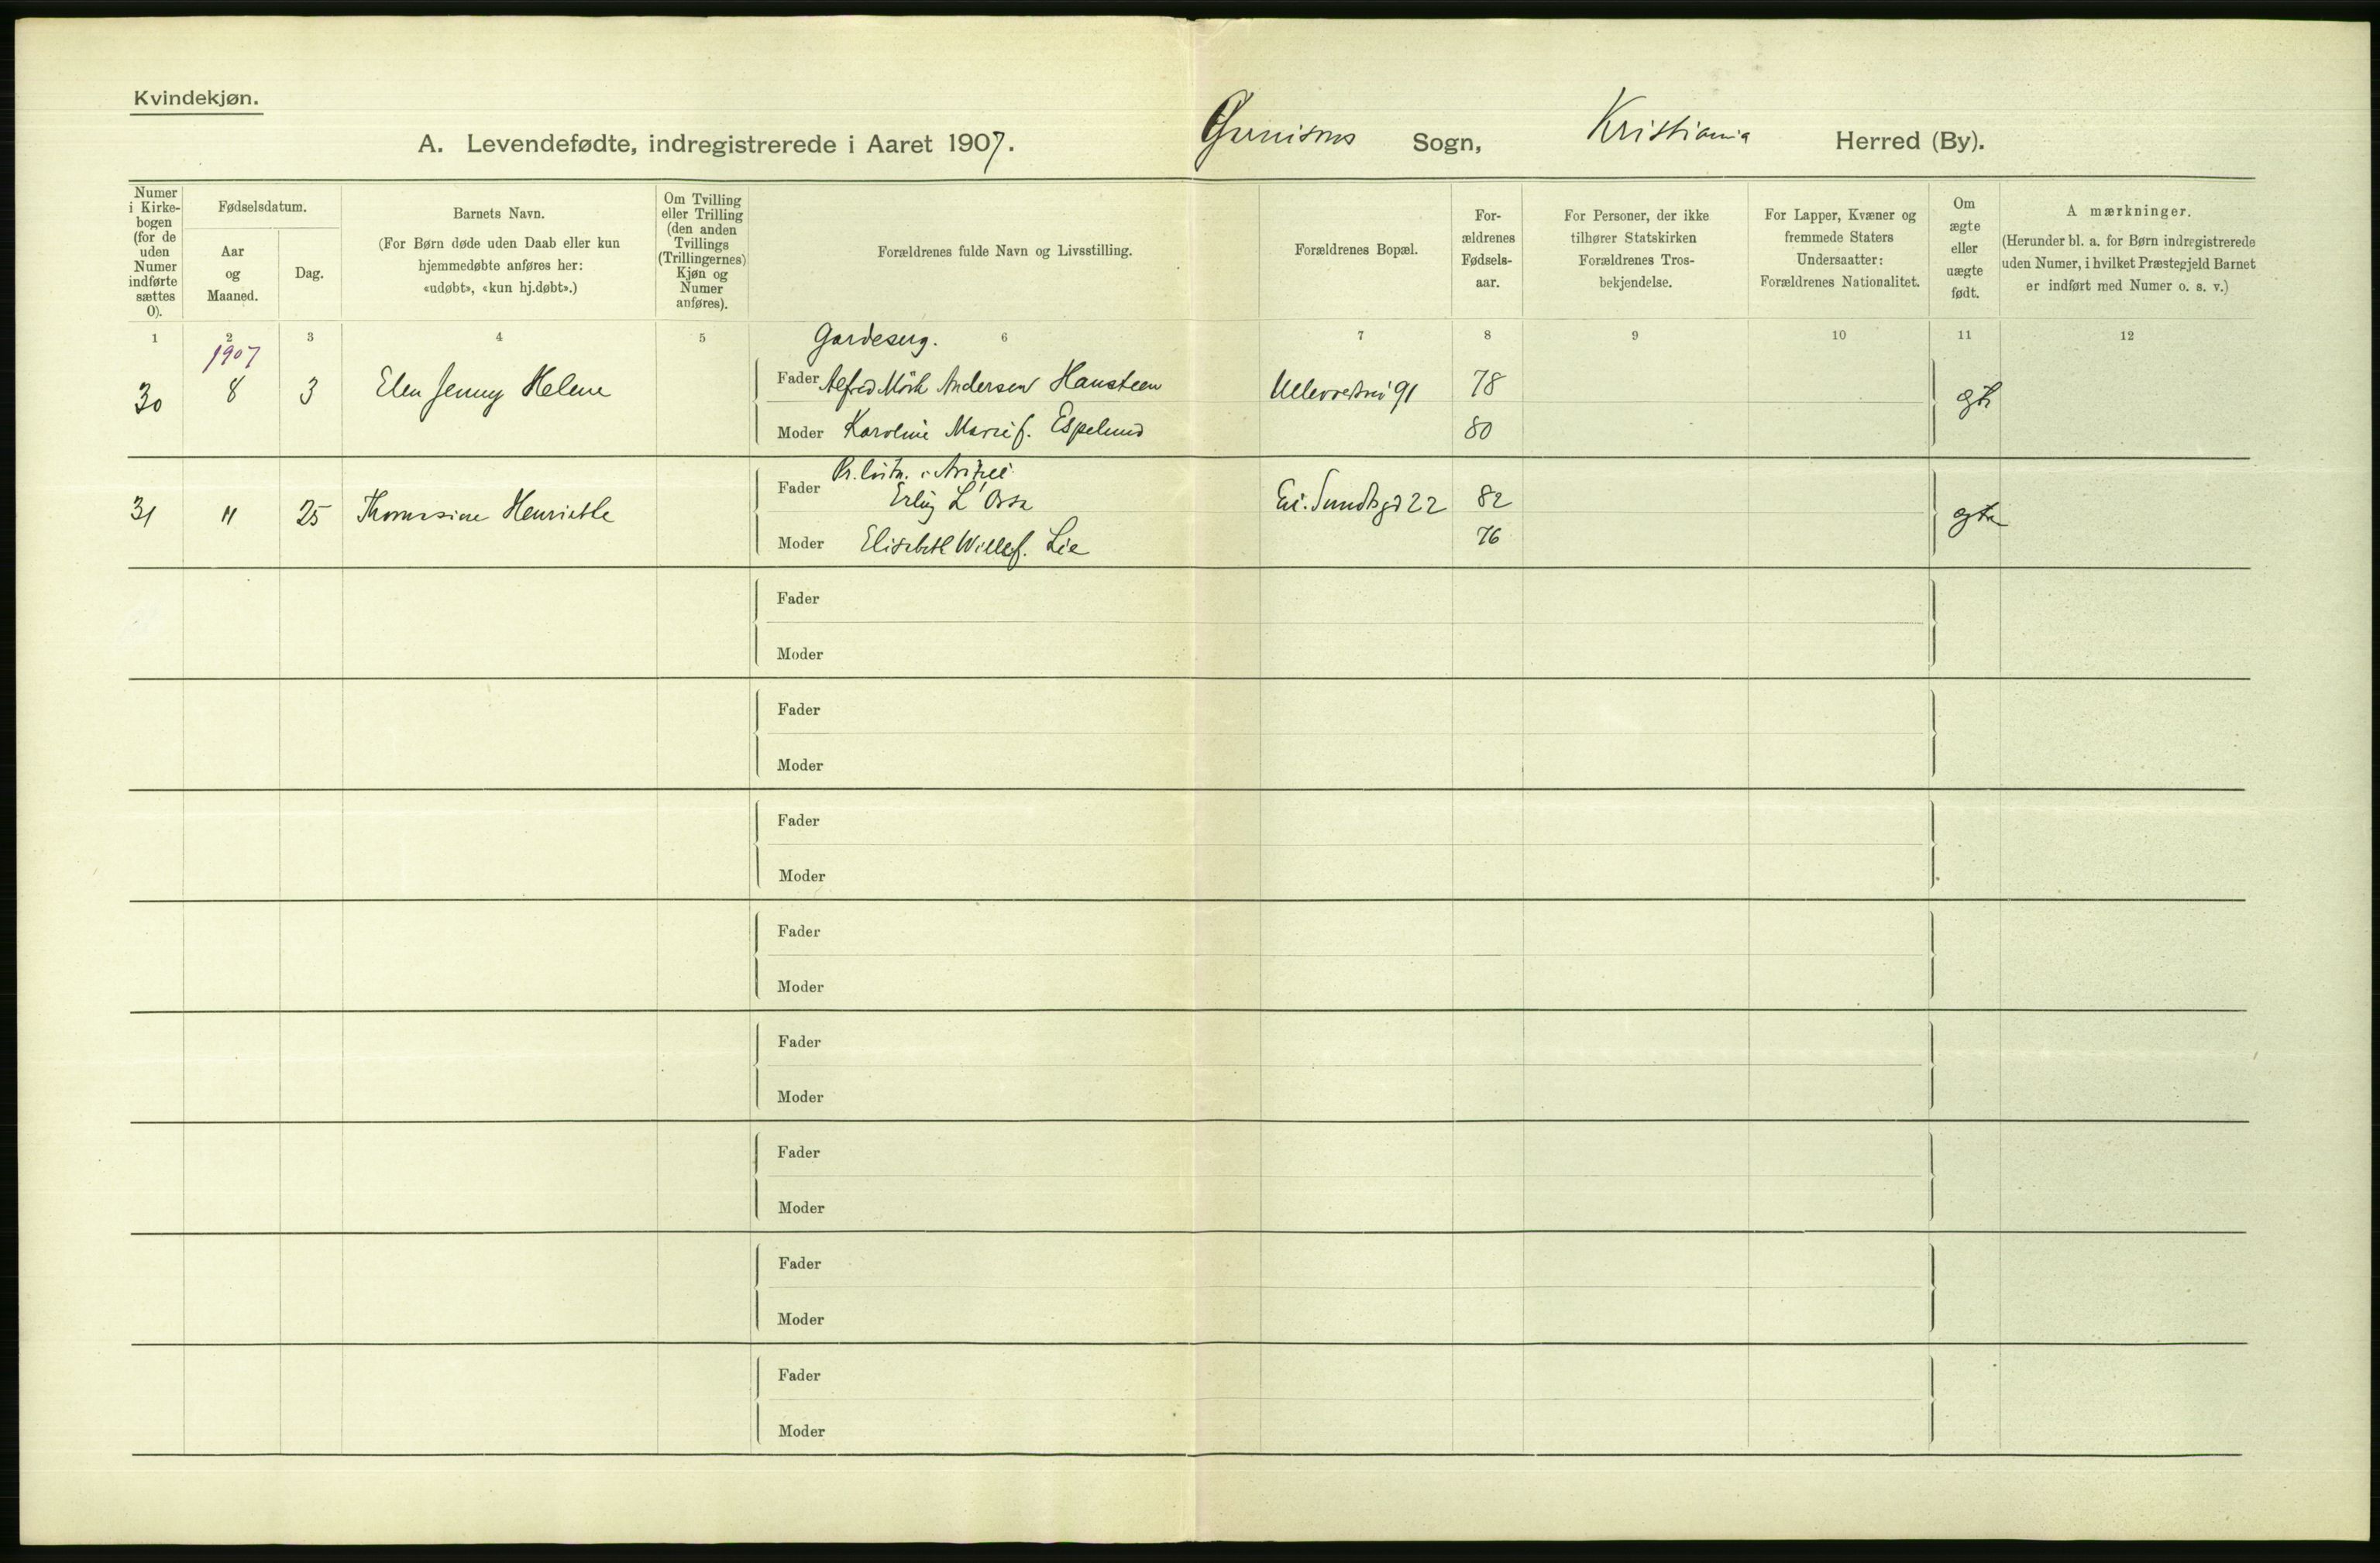 Kvindekjøn.
A. Levendefødte, indregistrerede i Aaret 1907. Sogn, Kristiania Herred (By).
Numer i Kirkebogen (for de uden Numer indførte sættes 0).
Fødselsdatum.
Aar og Maaned.
Dag.
Barnets Navn.
(For Børn døde uden Daab eller kun
hjemmedøbte anføres her:
«udøbt», «kun hj.døbt».)
Om Tvilling
eller Trilling
(den anden
Tvillings
(Trillingernes)
Kjøn og
Numer
anføres).
Forældrenes fulde Navn og Livsstilling.
Forældrenes Bopæl.
For-
ældrenes
Fødsels-
aar.
For Personer, der ikke
tilhører Statskirken
Forældrenes Tros-
bekjendelse.
For Lapper, Kvæner og
fremmede Staters
Undersaatter:
Forældrenes Nationalitet.
Om
ægte
eller
uægte
født.
A mærkninger.
(Herunder bl. a. for Børn indregistrerede
uden Numer, i hvilket Præstegjeld Barnet
er indført med Numer o. s. v.)
1 2 3 4 5 6 7 8 9 10 11 12
1907
30 8 3 Elen Jenny Helene Fader Alfred Mörk Andersen Hansteen 91 78 gte
Moder Karoline Marie f. Espelund 80
31 " 25 Thomasine Henriette Fader
Erling L'Orsa Ei. Sundtsgd 22 82 gte
Moder Elisabeth Wille f. Lie 76
Fader
Moder
Fader
Moder
Fader
Moder
Fader
Moder
Fader
Moder
Fader
Moder
Fader
Moder
Fader
Moder